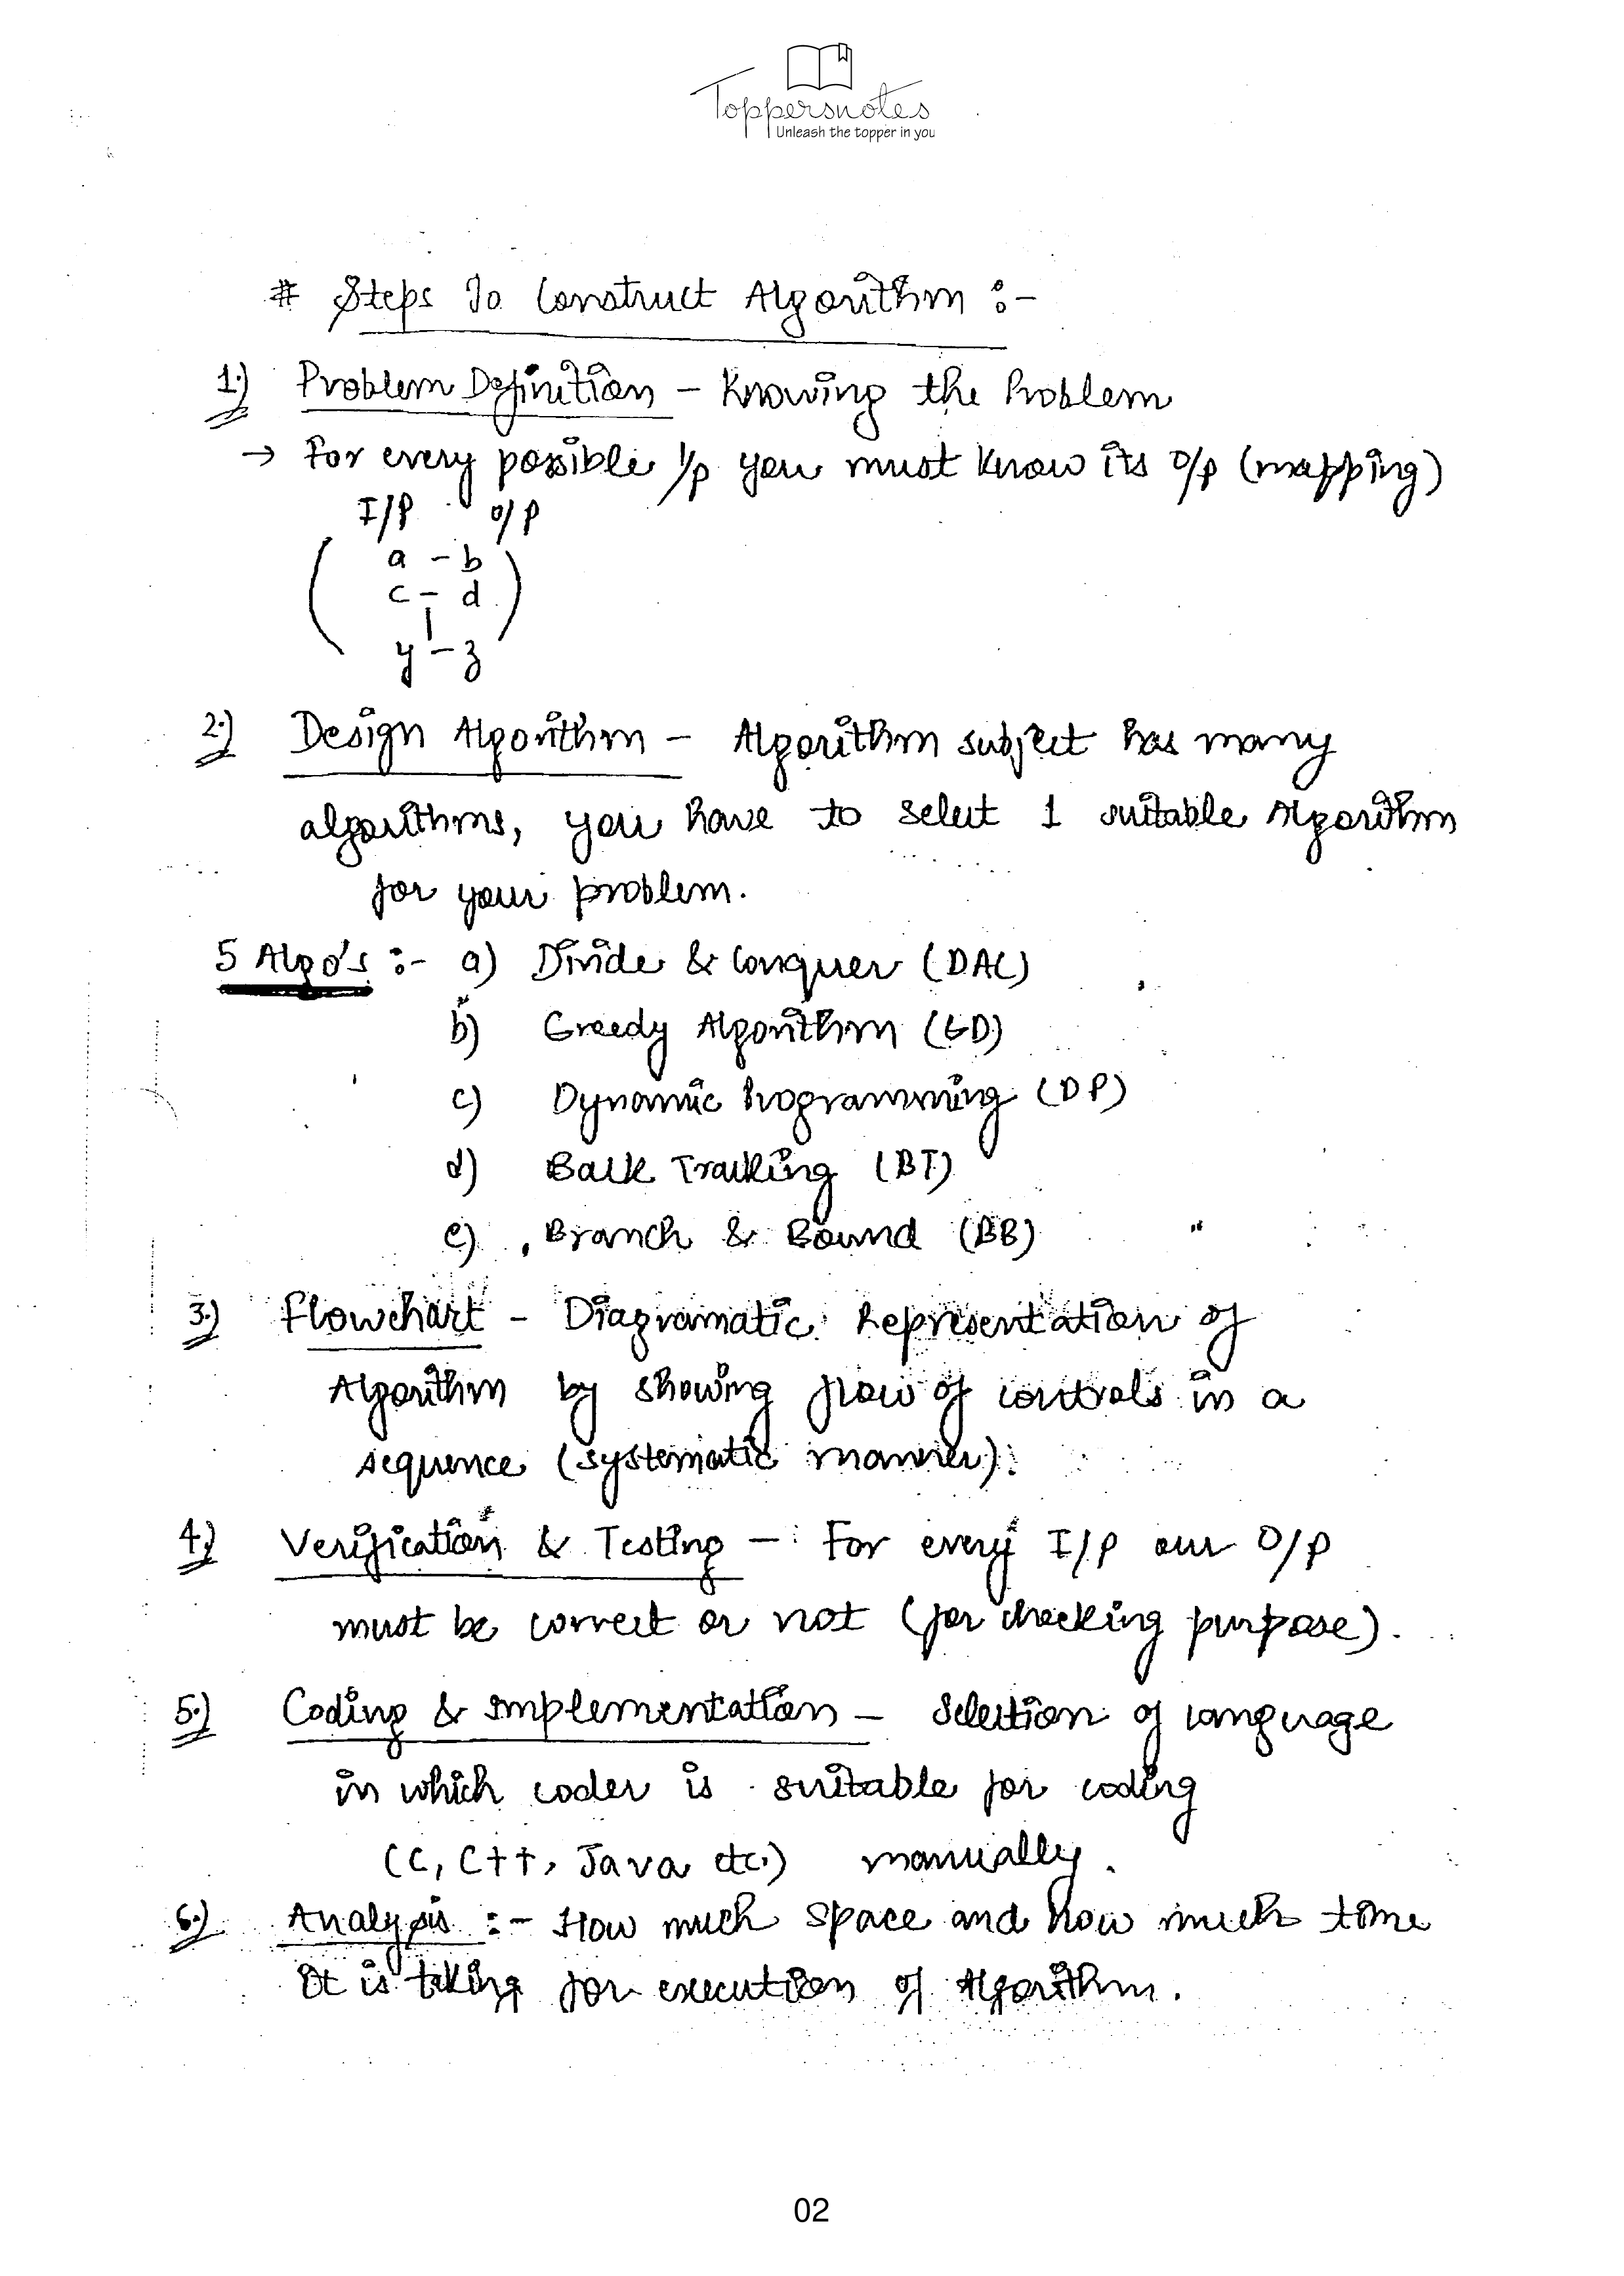 Toppersnotes
Unleash the topper in you
# Steps To Construct Algorithm :-
1.) Problem Definition - Knowing the Problem
→ For every possible I/p you must know its O/p (mapping)
I/P O/P
a - b
c - d
|
y - z
2.) Design Algorithm - Algorithm subject has many
algorithms, you have to select 1 suitable Algorithm
for your problem.
5 Algo's :- a) Divide & Conquer (DAC)
b) Greedy Algorithm (GD)
c) Dynamic Programming (DP)
d) Back Tracking (BT)
e) Branch & Bound (BB)
3.) Flowchart - Diagramatic Representation of
Algorithm by showing flow of controls in a
sequence (systematic manner).
4.) Verification & Testing - For every I/p our O/p
must be correct or not (for checking purpose).
5.) Coding & Implementation - Selection of language
in which coder is suitable for coding
(C, C++, Java etc.) manually.
6.) Analysis :- How much space and how much time
It is taking for execution of Algorithm.
02